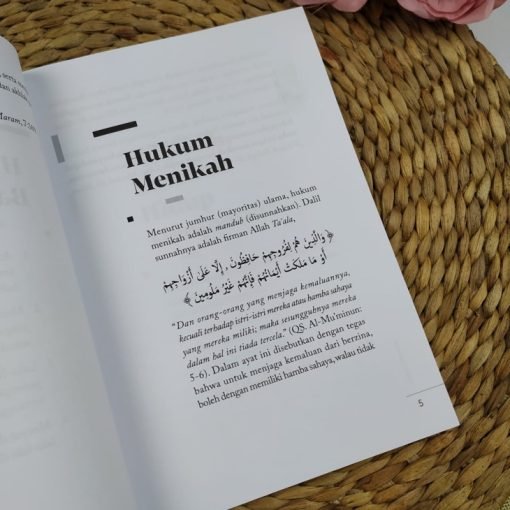 serta
dan akhlak
Maram, 7:261
Hukum
Menikah
Menurut jumhur (mayoritas) ulama, hukum
menikah adalah mandub (disunnahkan). Dalil
sunnahnya adalah firman Allah Ta'ala,
﴿ وَالَّذِينَ هُمْ لِفُرُوجِهِمْ حَافِظُونَ . إِلَّا عَلَى أَزْوَاجِهِمْ
أَوْ مَا مَلَكَتْ أَيْمَانُهُمْ فَإِنَّهُمْ غَيْرُ مَلُومِينَ ﴾
"Dan orang-orang yang menjaga kemaluannya,
kecuali terhadap istri-istri mereka atau hamba sahaya
yang mereka miliki; maka sesungguhnya mereka
dalam hal ini tiada tercela." (QS. Al-Mu'minun:
5-6). Dalam ayat ini disebutkan dengan tegas
bahwa untuk menjaga kemaluan dari berzina,
boleh dengan memiliki hamba sahaya, walau tidak
5